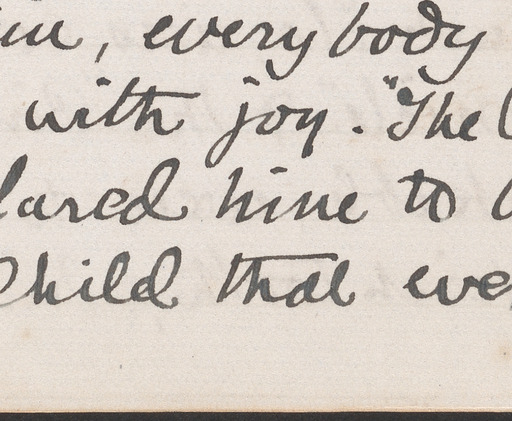 , everybody
with joy. "The
lared him to
Child that eve